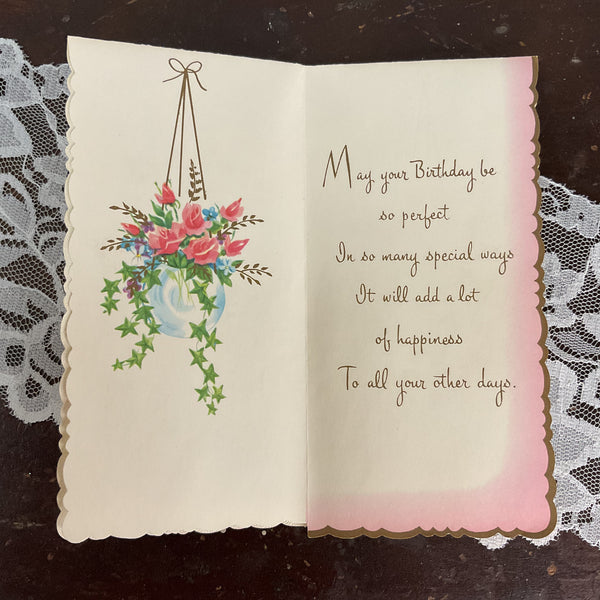 May your Birthday be
so perfect
In so many special ways
It will add a lot
of happiness
To all your other days.